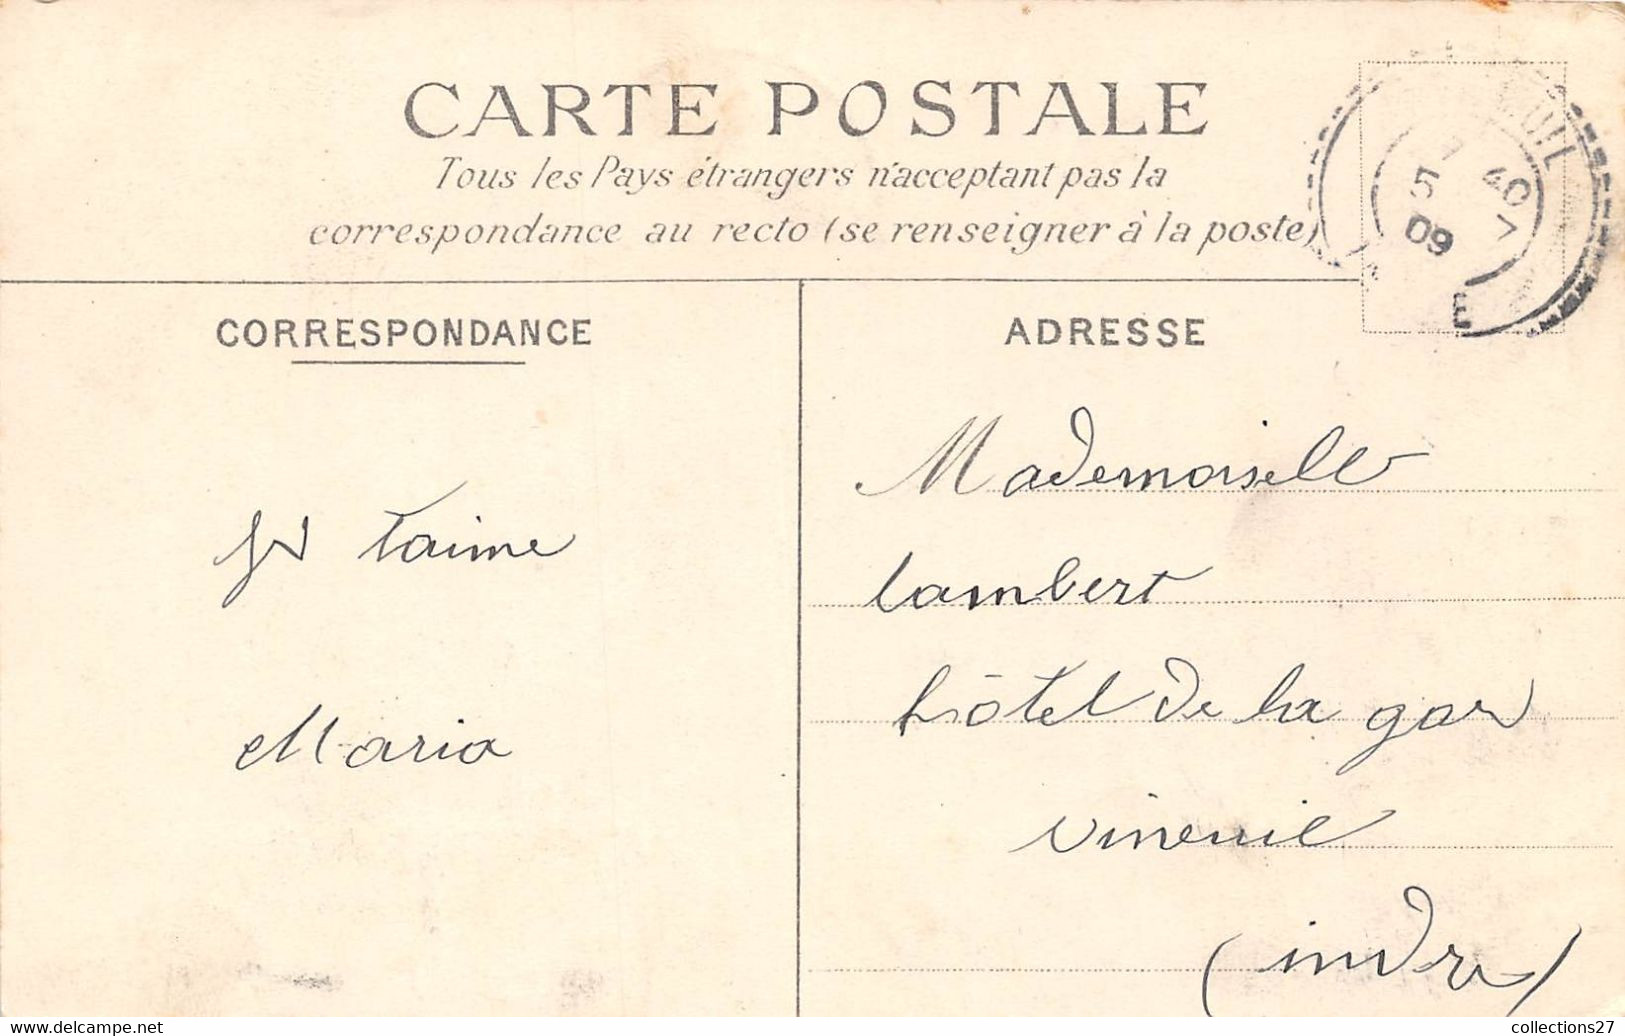 CARTE POSTALE
Tous les Pays étrangers n'acceptant pas la
correspondance au recto (se renseigner à la poste)
7 40
5
09
E
CORRESPONDANCE
ADRESSE
Je t'aime
Maria
Mademoiselle
Lambert
hôtel de la gare
vineuil
(indre)
collections27